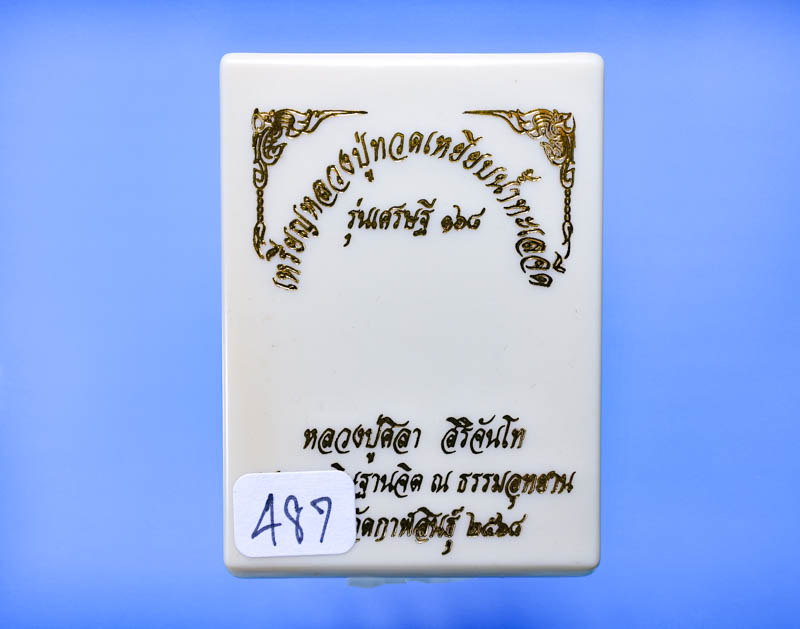 เหรียญหลวงปู่ทวดเหยียบน้ำทะเลจืด
รุ่นเศรษฐี ๑๖๘
หลวงปู่ศิลา สิริจันโท
ณ ธรรมอุทยาน
๒๕๖๘
487